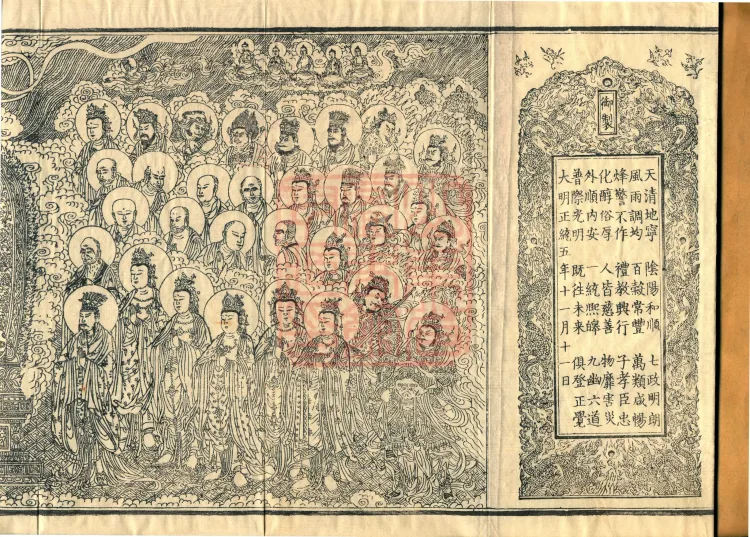 御製
天清地寧 陰陽和順 七政明朗
風雨調均 百穀常豐 萬類咸暢
烽警不作 禮教興行 子孝臣忠
化醇俗厚 人皆慈善 物靡害災
外順內安 一統熙皥 九幽六道
普際光明 既往未來 俱登正覺
大明正統五年十一月十一日